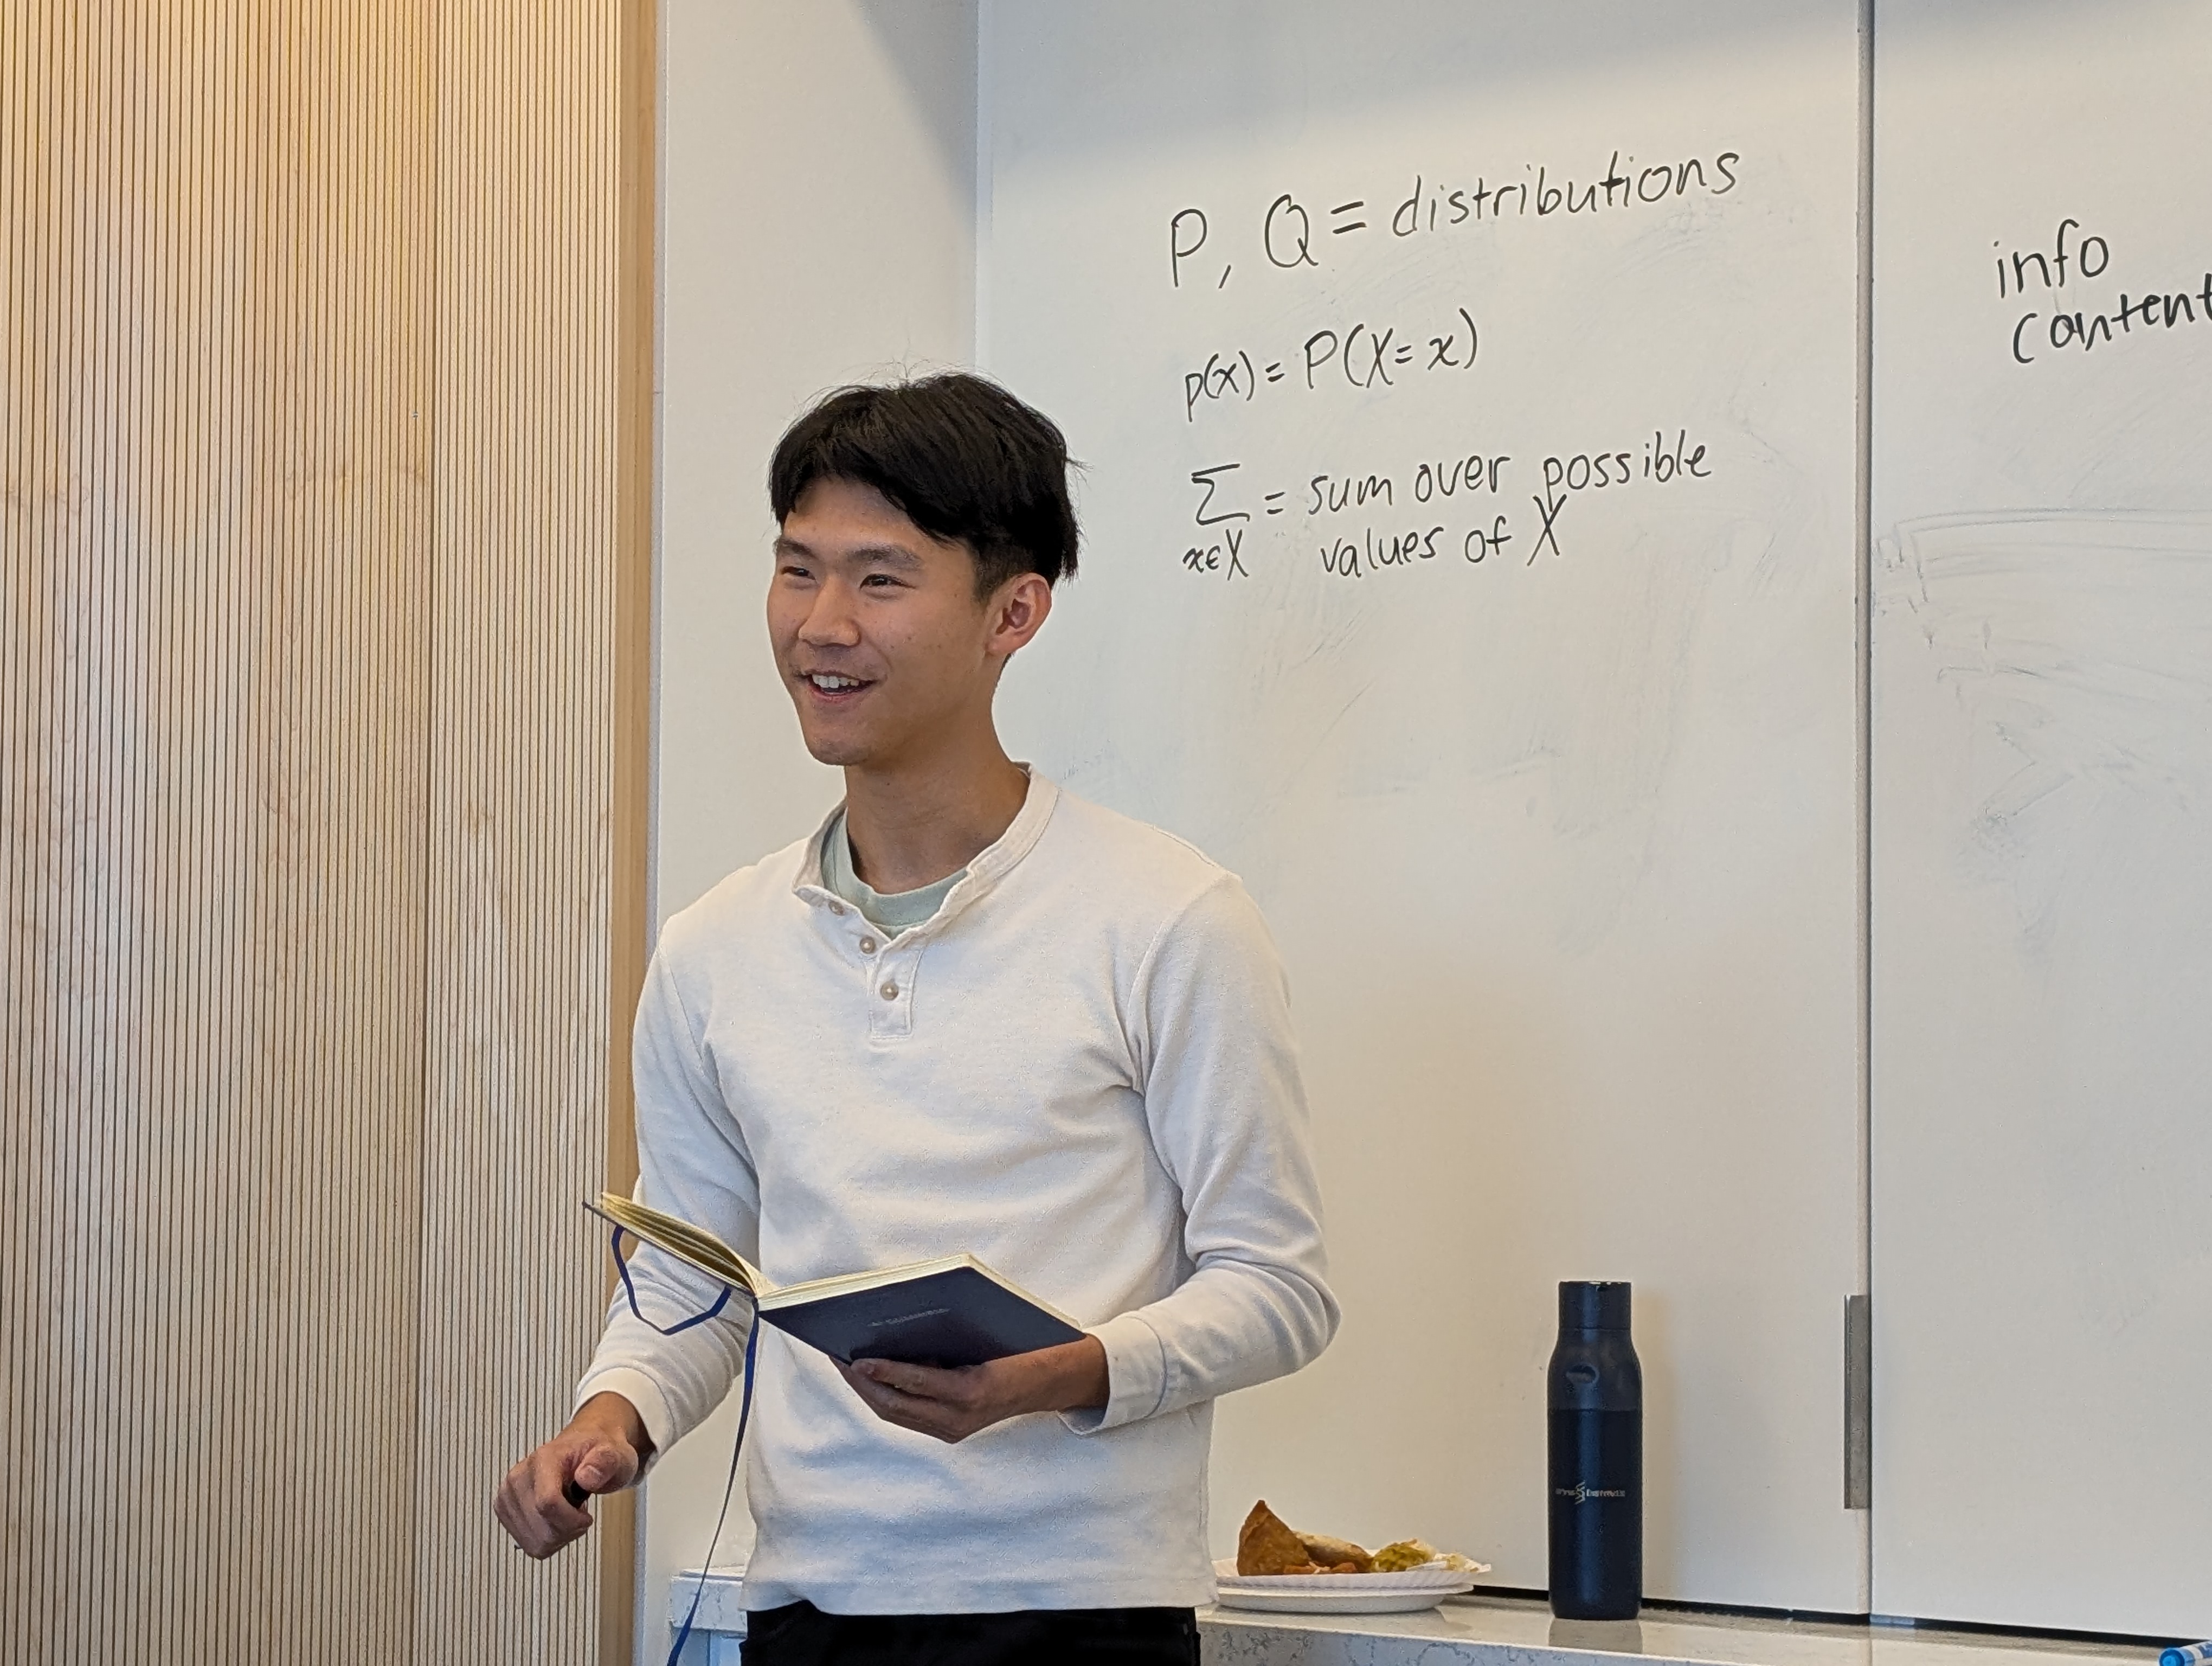 P, Q = distributions
p(x) = P(X = x)
∑ = sum over possible
x∈X values of X
info
content